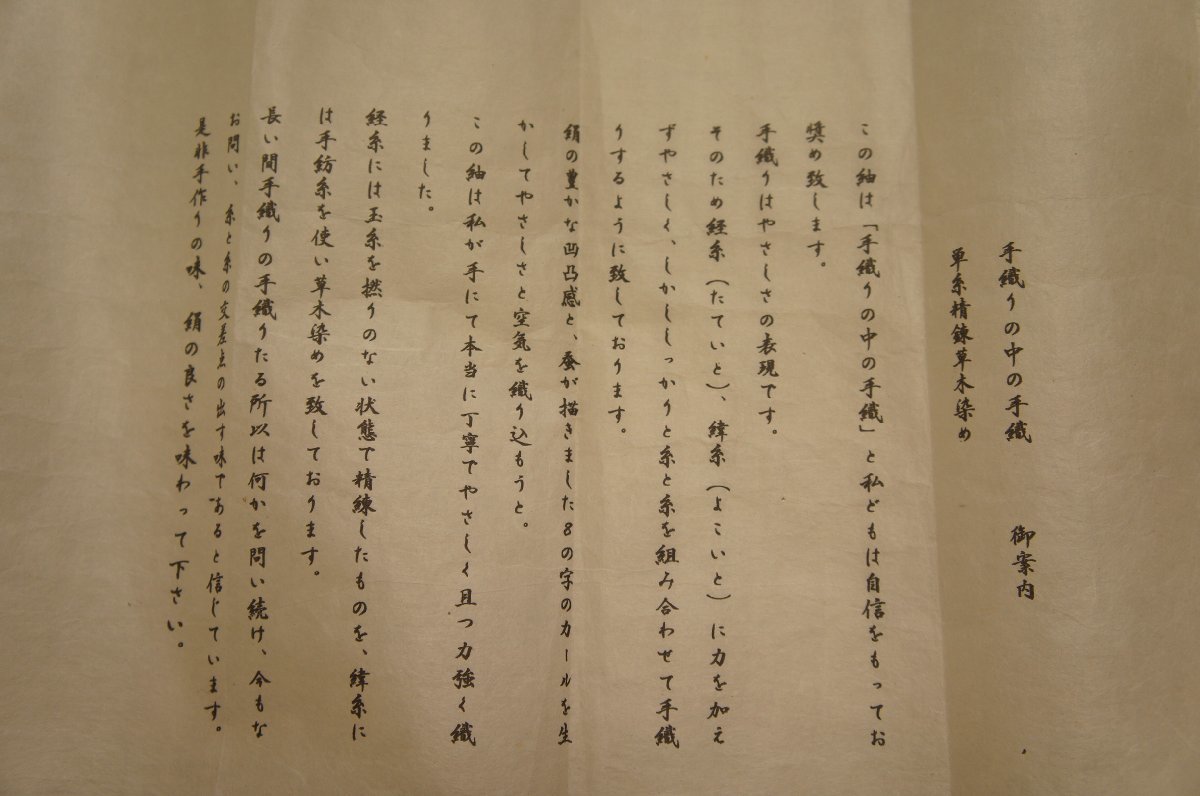 手織りの中の手織　御案内
単糸精錬草木染め
この紬は「手織りの中の手織」と私どもは自信をもってお
奨め致します。
手織りはやさしさの表現です。
そのため経糸（たていと）、緯糸（よこいと）に力を加え
ずやさしく、しかししっかりと糸と糸を組み合わせて手織
りするように致しております。
絹の豊かな凹凸感と、蚕が描きました8の字のカールを生
かしてやさしさと空気を織り込もうと。
この紬は私が手にて本当に丁寧でやさしく且つ力強く織
りました。
経糸には玉糸を撚りのない状態で精練したものを、緯糸に
は手紡糸を使い草木染めを致しております。
長い間手織りの手織りたる所以は何かを問い続け、今もな
お問い、糸と糸の交差点の出す味であると信じています。
是非手作りの味、絹の良さを味わって下さい。